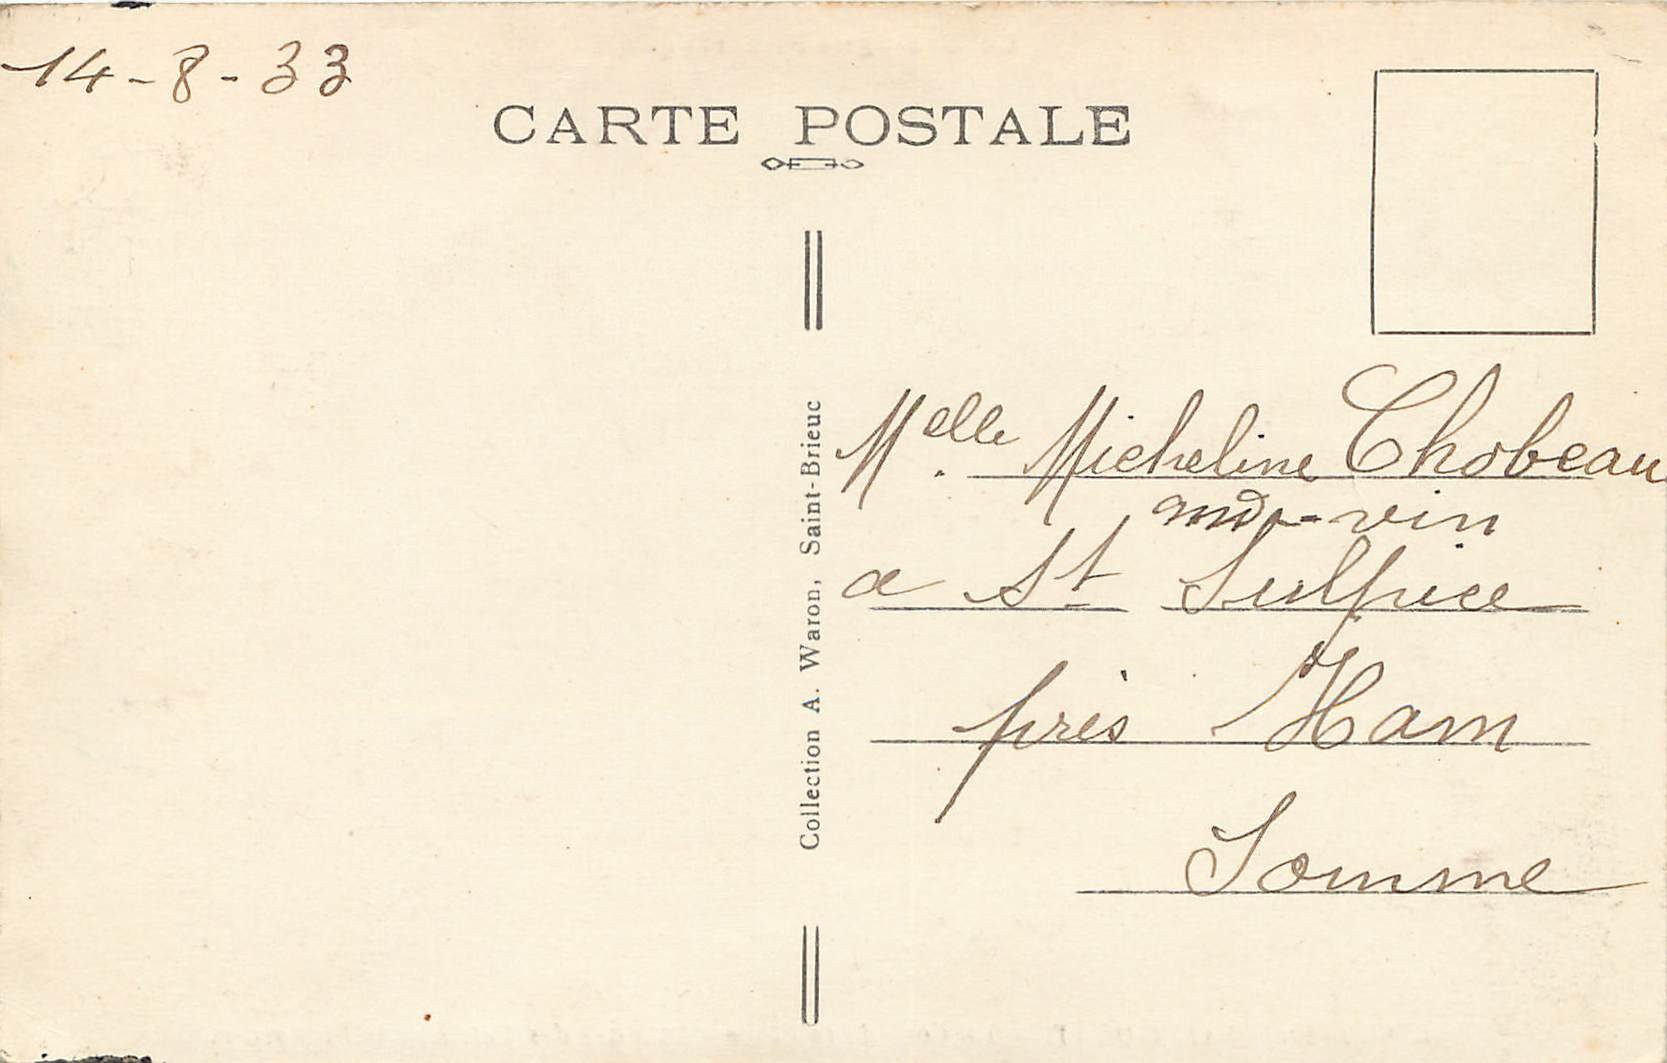 14-8-33
CARTE POSTALE
Collection A. Waron, Saint-Brieuc
Melle Micheline Chobeau
md-vin
a St Sulpice
près Ham
Somme